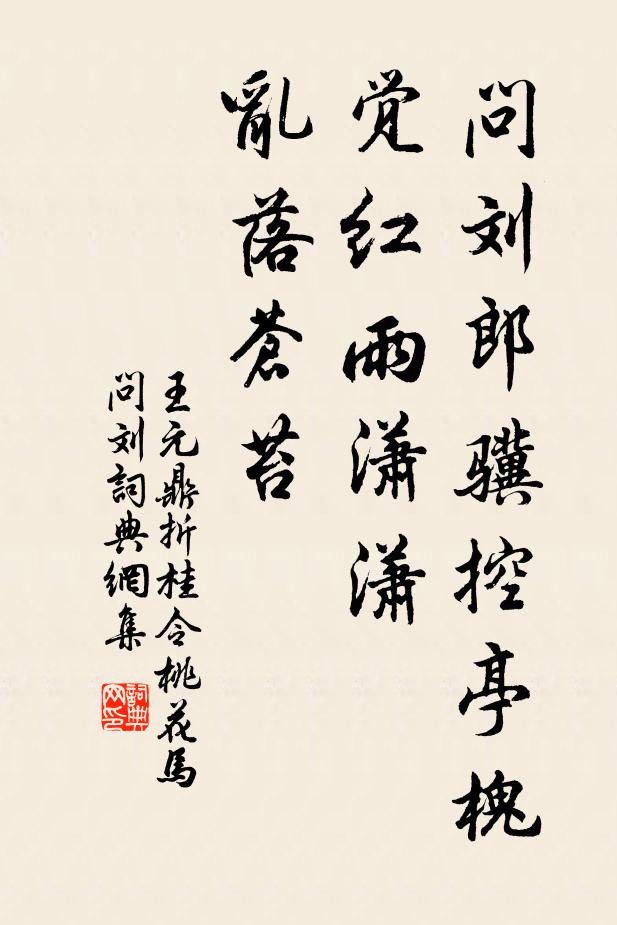 问刘郎骥控亭槐
觉红雨潇潇
亂落蒼苔
王元鼎折桂令桃花馬
问刘詞典網集
詞典网印